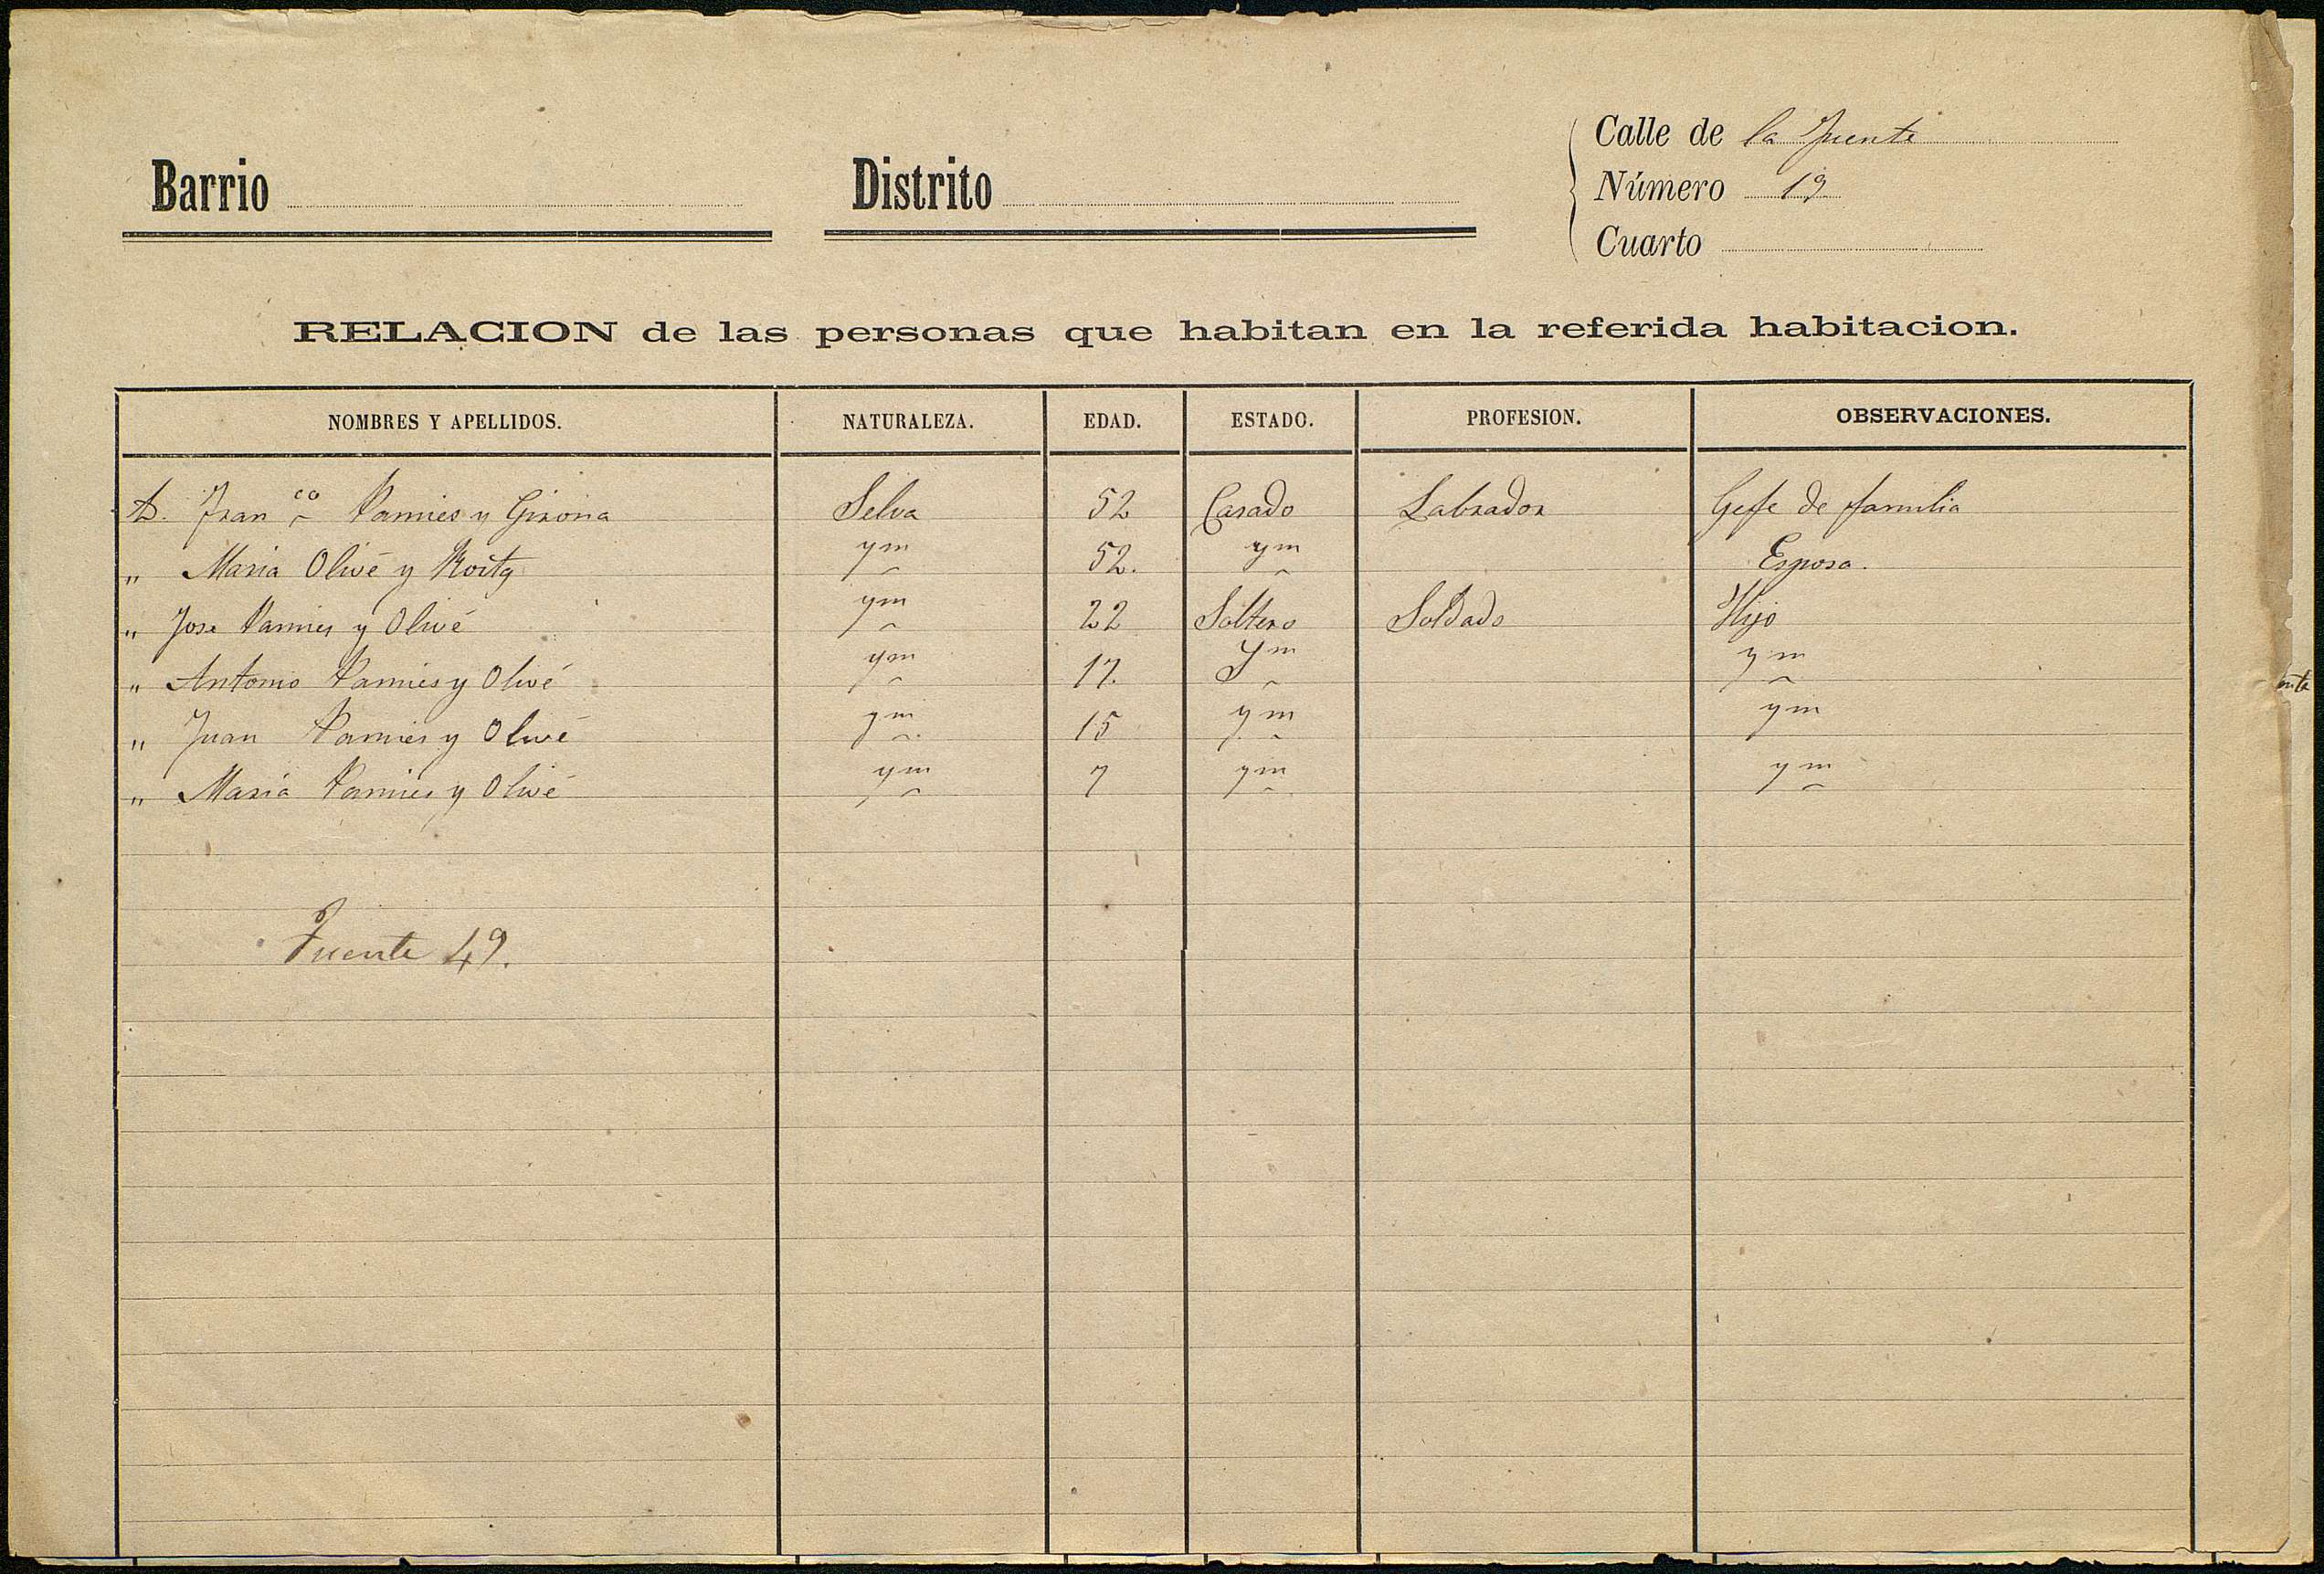 Calle de la Fuente
Barrio Distrito Número 19
Cuarto
RELACION de las personas que habitan en la referida habitacion.
NOMBRES Y APELLIDOS. NATURALEZA. EDAD. ESTADO. PROFESION. OBSERVACIONES.
D. Fran.co Pamies y Girona Selva 52 Casado Labrador Gefe de familia
" Maria Olivé y Roitg ym 52. ym Esposa.
" Jose Pamies y Olivé ym 22 Soltero Soldado Hijo
" Antonio Pamies y Olivé ym 17. Ym ym
" Juan Pamies y Olivé ym 15 ym ym
" Maria Pamies y Olivé ym 7 ym ym
Fuente 49.